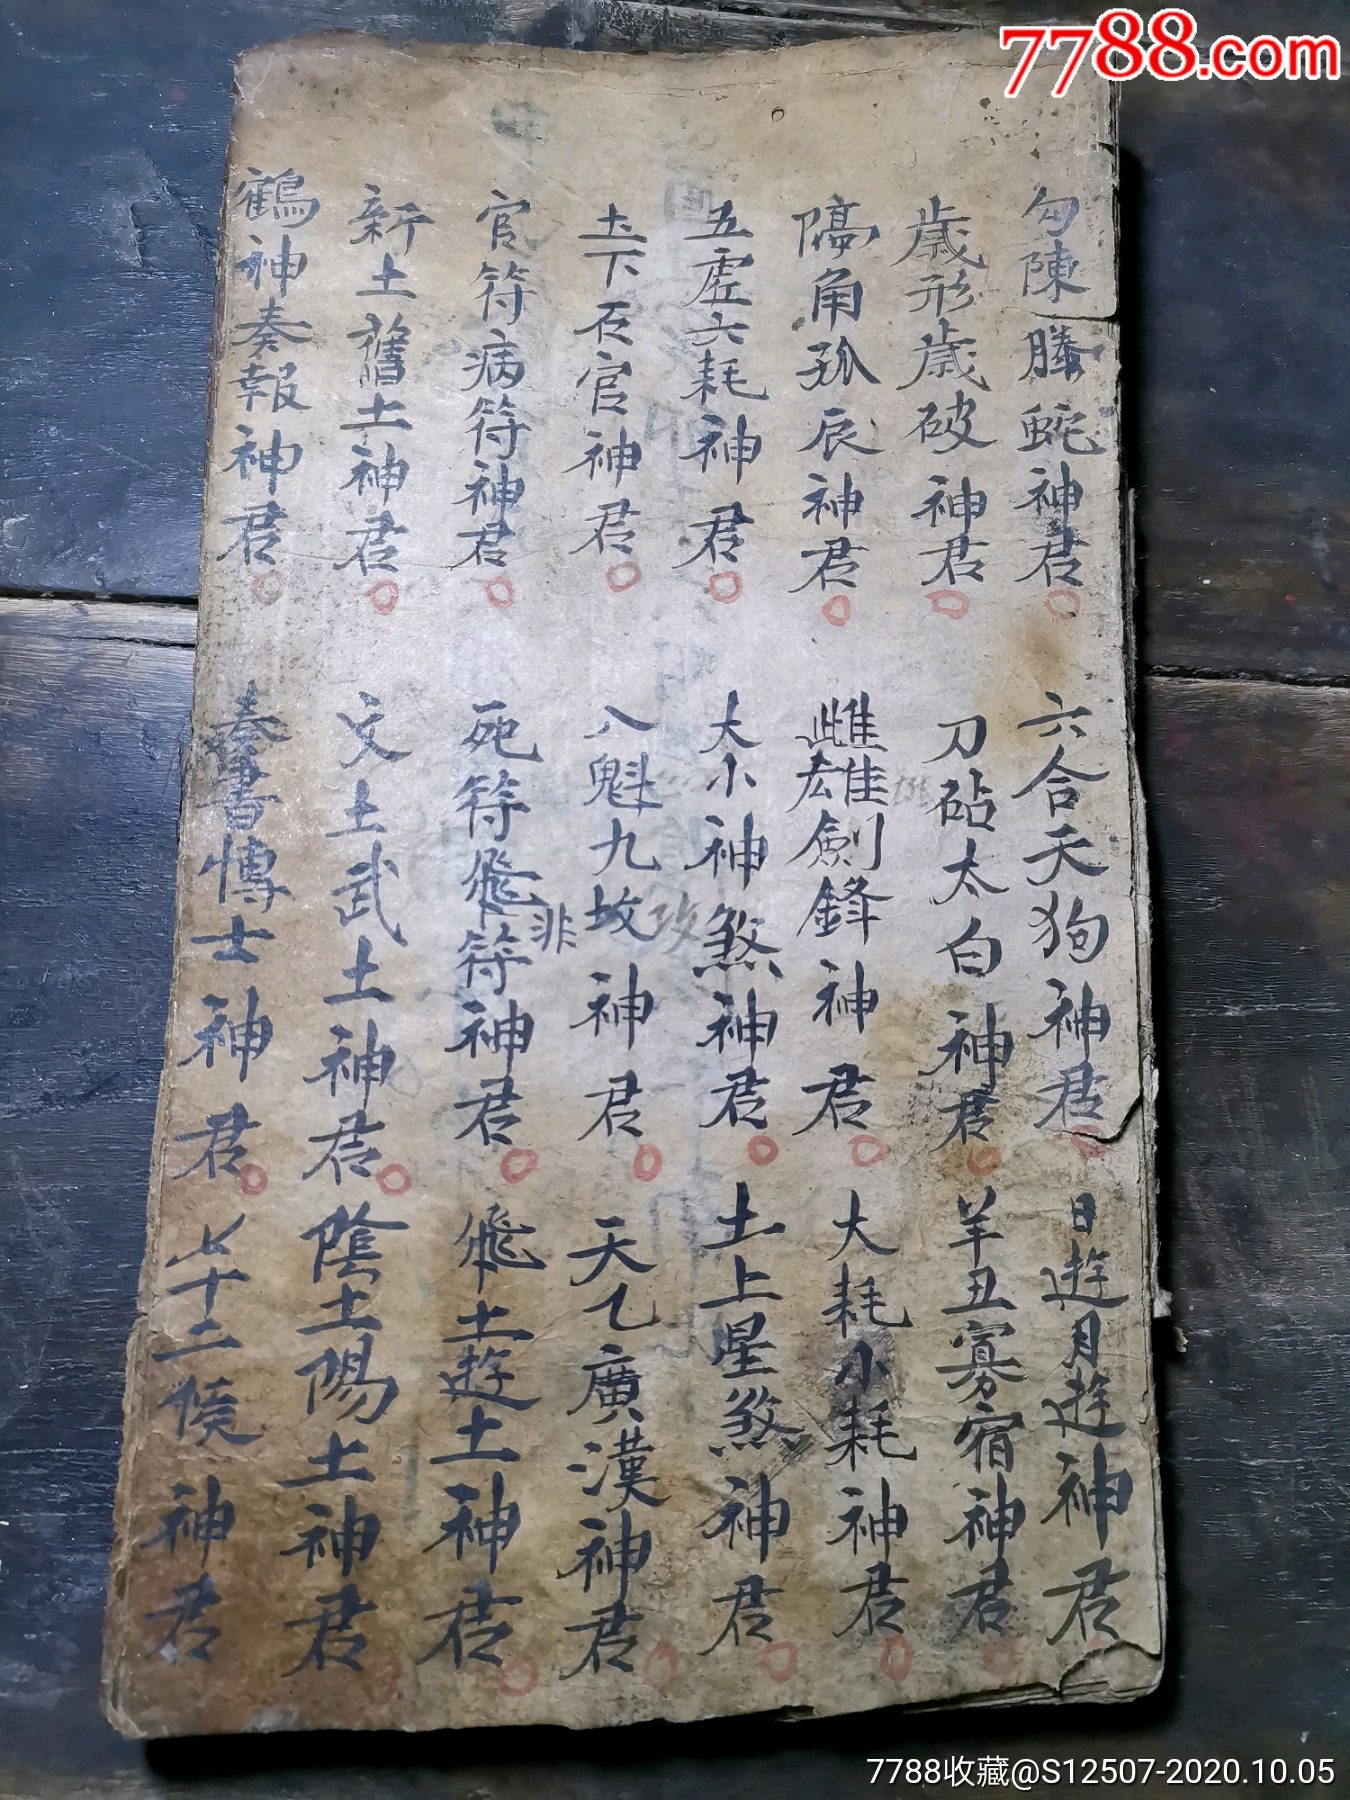 7788.com
勾陳螣蛇神君○六合天狗神君○日遊月遊神君
歲形歲破神君○刀砧太白神君○羊丑寡宿神君○
隔角孤辰神君○雌雄劍鋒神君○大耗小耗神君○
五虛六耗神君○大小神煞神君○土上星煞神君○
土下石官神君○八魁九坟神君○天乙廣漢神君○
官符病符神君○死符飛符神君○飛土遊土神君○
非
新土舊土神君○文土武土神君○陰土陽土神君○
鶴神奏報神君○奏書愽士神君○七十二候神君
7788收藏@S12507-2020.10.05